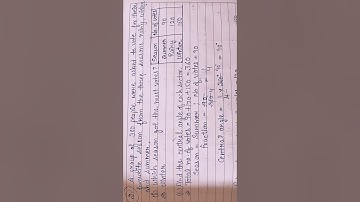 A group of 360 people were asked to vote for their
favourite season from the three seasons rainy, winter
and summer.
(i) Which season got the most votes?
→ Winter
Season No. of votes
Summer 90
Rainy 120
Winter 150
(ii) Find the central angle of each sector.
→ Total no of votes = 90+120+150 = 360
Season = Summer ; No of votes = 90
Fraction = 90/360 = 1/4
Central angle = 1/4 x 360° = 90°